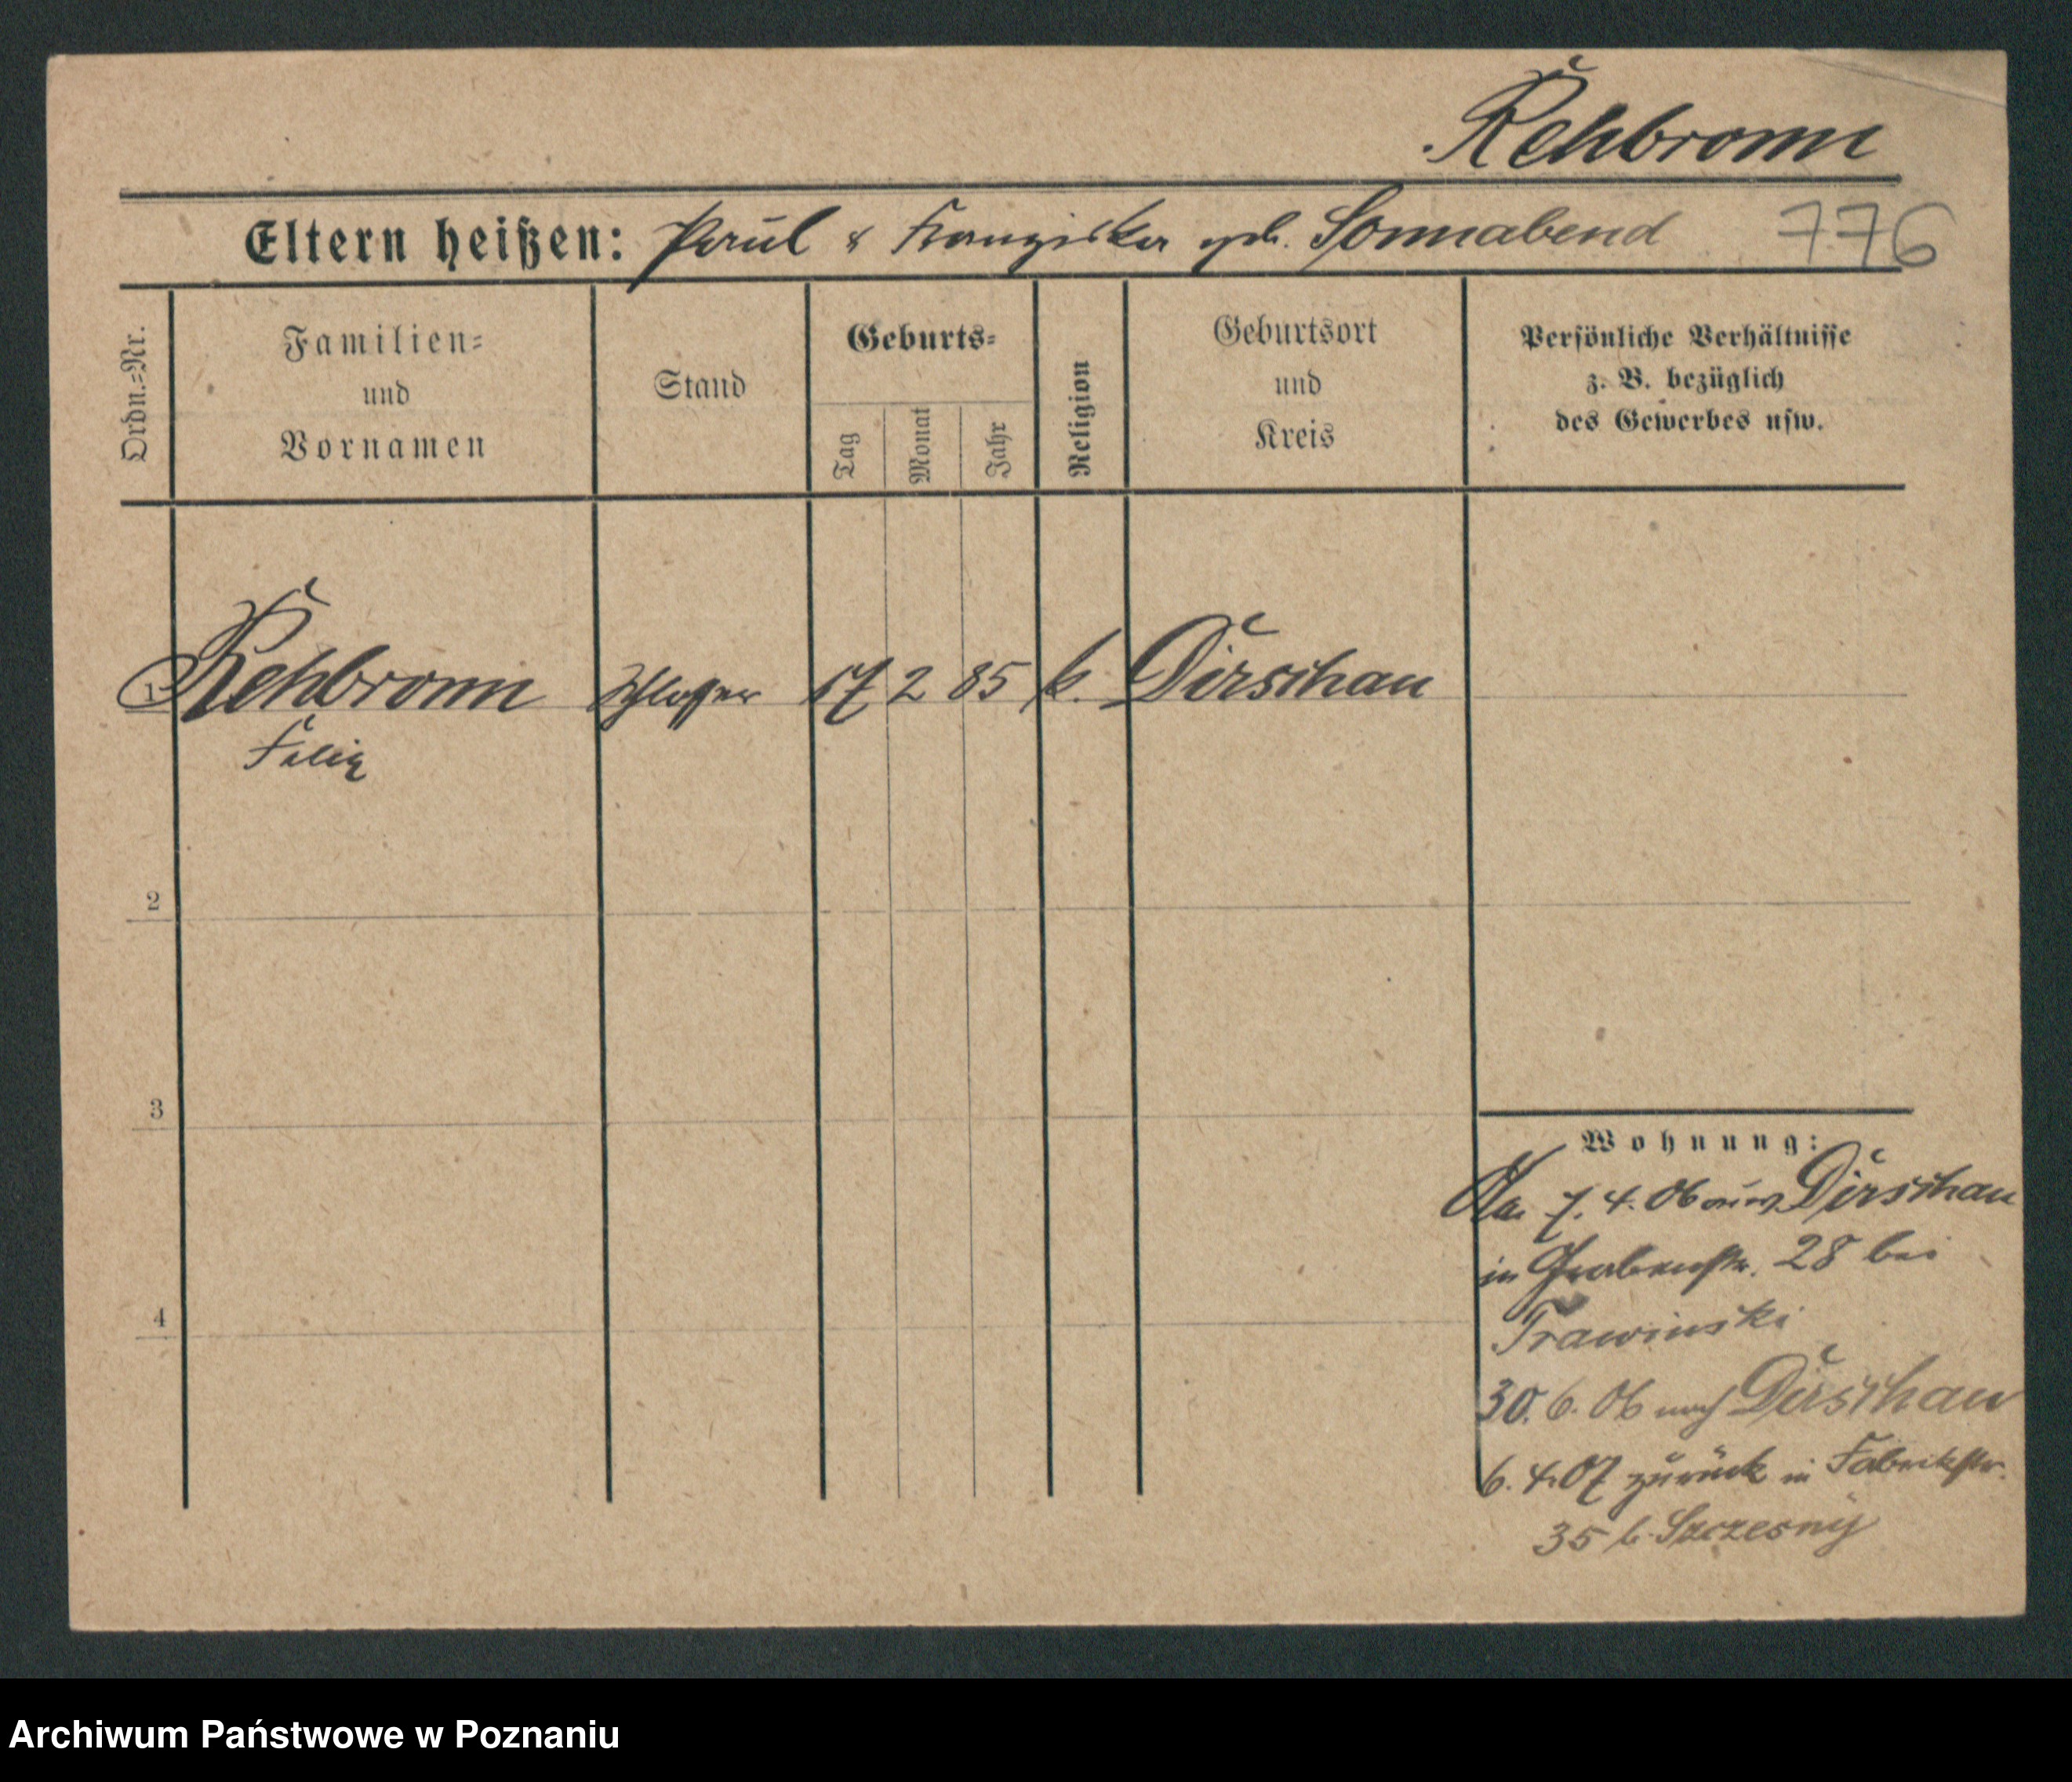 Rehbronn
Eltern heißen: Paul & Franziska geb. Sonnabend 776
Ordn.=Nr.
Familien=
und
Vornamen
Stand
Geburts=
Tag
Monat
Jahr
Religion
Geburtsort
und
Kreis
Persönliche Verhältnisse
z. B. bezüglich
des Gewerbes usw.
1 Rehbronn Schlosser 17 2 85 k. Dirschau
Felix
2
3
4
Wohnung:
7. 4. 06 aus Dirschau
in Grabenstr. 28 bei
Trawinski
30. 6. 06 nach Dirschau
6. 4. 07 zurück in Fabrikstr.
35 b. Szczesny
Archiwum Państwowe w Poznaniu